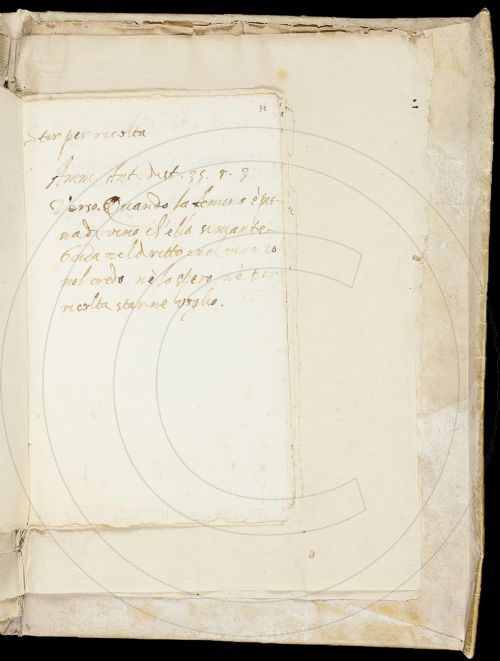 36
Star per ricolta
Amm. Ant. dist. 35. r. 3
Verso. Quando la femina è pie
na di vino ch'ella si mante
nel diritto nel vero io
nol credo, nè lo spero, nè per
ricolta starne voglio.